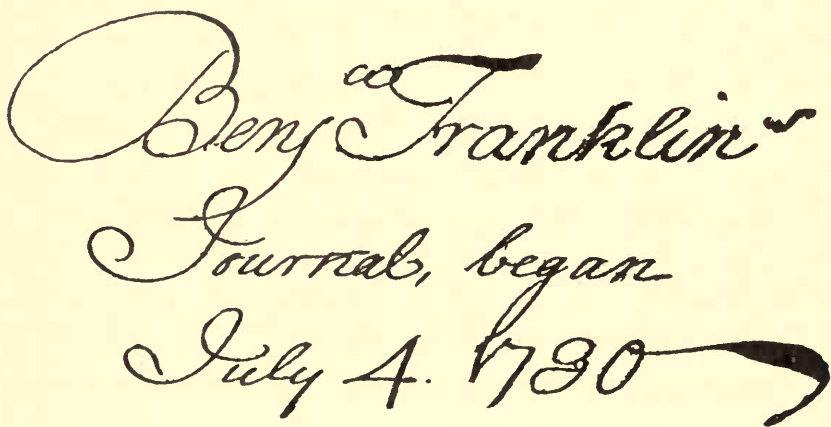 Benjᵃ Franklin's
Journal, began
July 4. 1730